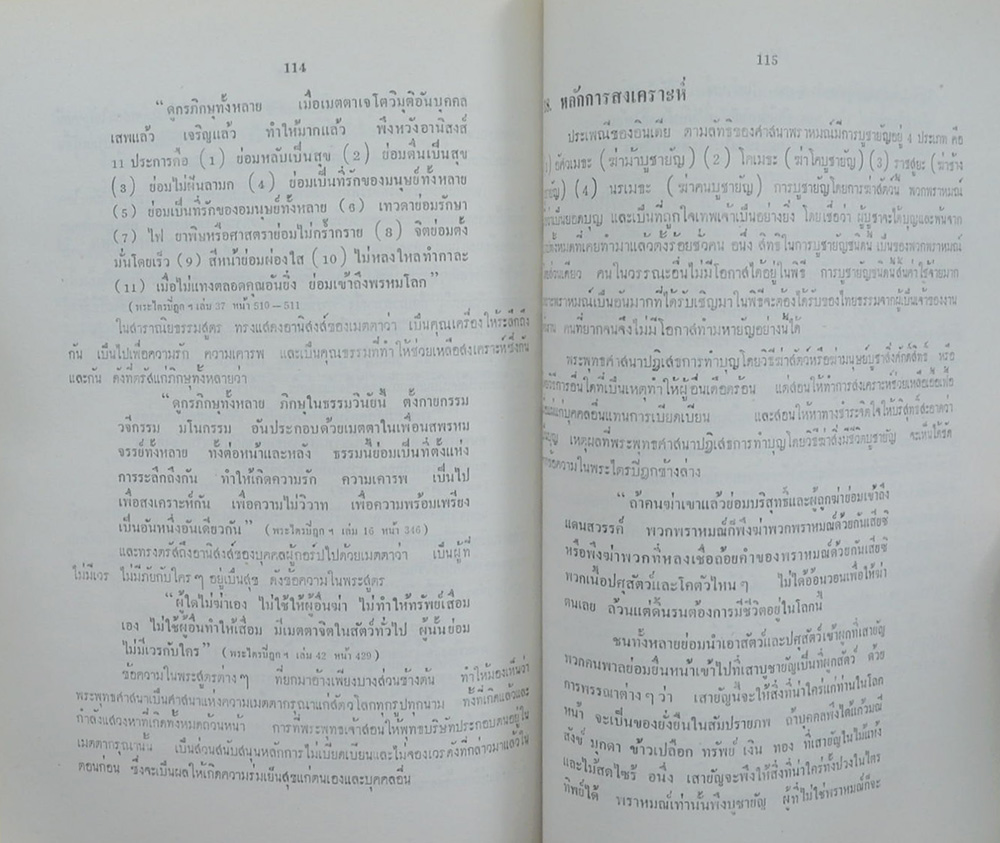 114
“ดูกรภิกษุทั้งหลาย เมื่อเมตตาเจโตวิมุติอันบุคคล
เสพแล้ว เจริญแล้ว ทำให้มากแล้ว พึงหวังอานิสงส์
11 ประการคือ (1) ย่อมหลับเป็นสุข (2) ย่อมตื่นเป็นสุข
(3) ย่อมไม่ฝันลามก (4) ย่อมเป็นที่รักของมนุษย์ทั้งหลาย
(5) ย่อมเป็นที่รักของอมนุษย์ทั้งหลาย (6) เทวดาย่อมรักษา
(7) ไฟ ยาพิษหรือศาสตราย่อมไม่กร้ำกราย (8) จิตย่อมตั้ง
มั่นโดยเร็ว (9) สีหน้าย่อมผ่องใส (10) ไม่หลงใหลทำกาละ
(11) เมื่อไม่แทงตลอดคุณอันยิ่ง ย่อมเข้าถึงพรหมโลก”
(พระไตรปิฎก ฯ เล่ม 37 หน้า 510–511)
ในสาราณิยธรรมสูตร ทรงแสดงอานิสงส์ของเมตตาว่า เป็นคุณเครื่องให้ระลึกถึง
กัน เป็นไปเพื่อความรัก ความเคารพ และเป็นคุณธรรมที่ทำให้ช่วยเหลือสงเคราะห์ซึ่งกัน
และกัน ดังที่ตรัสแก่ภิกษุทั้งหลายว่า
“ดูกรภิกษุทั้งหลาย ภิกษุในธรรมวินัยนี้ ตั้งกายกรรม
วจีกรรม มโนกรรม อันประกอบด้วยเมตตาในเพื่อนสพรหม
จรรย์ทั้งหลาย ทั้งต่อหน้าและหลัง ธรรมนี้ย่อมเป็นที่ตั้งแห่ง
การระลึกถึงกัน ทำให้เกิดความรัก ความเคารพ เป็นไป
เพื่อสงเคราะห์กัน เพื่อความไม่วิวาท เพื่อความพร้อมเพรียง
เป็นอันหนึ่งอันเดียวกัน” (พระไตรปิฎก ฯ เล่ม 16 หน้า 346)
และทรงตรัสถึงอานิสงส์ของบุคคลผู้กอร์ปไปด้วยเมตตาว่า เป็นผู้ที่
ไม่มีเวร ไม่มีภัยกับใคร ๆ อยู่เป็นสุข ดังข้อความในพระสูตร
“ผู้ใดไม่ฆ่าเอง ไม่ใช้ให้ผู้อื่นฆ่า ไม่ทำให้ทรัพย์เสื่อม
เอง ไม่ใช้ผู้อื่นทำให้เสื่อม มีเมตตาจิตในสัตว์ทั่วไป ผู้นั้นย่อม
ไม่มีเวรกับใคร” (พระไตรปิฎก ฯ เล่ม 42 หน้า 429)
ข้อความในพระสูตรต่างๆ ที่ยกมาอ้างเพียงบางส่วนข้างต้น ทำให้มองเห็นว่า
พระพุทธศาสนาเป็นศาสนาแห่งความเมตตากรุณาแก่สัตวโลกทุกรูปทุกนาม ทั้งที่เกิดแล้วและ
กำลังแสวงหาที่เกิดทั้งหมดถ้วนหน้า การที่พระพุทธเจ้าสอนให้พุทธบริษัทประกอบตนอยู่ใน
เมตตากรุณานั้น เป็นส่วนสนับสนุนหลักการไม่เบียดเบียนและไม่จองเวรดังที่กล่าวมาแล้วใน
ตอนก่อน ซึ่งจะเป็นผลให้เกิดความร่มเย็นเป็นสุขแก่ตนเองและบุคคลอื่น
115
8. หลักการสงเคราะห์
ประเพณีของอินเดีย ตามลัทธิของศาสนาพราหมณ์มีการบูชายัญอยู่ 4 ประเภท คือ
1) อัศวเมธะ (ฆ่าม้าบูชายัญ) (2) โคเมธะ (ฆ่าโคบูชายัญ) (3) ราชสูยะ (ฆ่าช้าง
ชายัญ) (4) นรเมธะ (ฆ่าคนบูชายัญ) การบูชายัญโดยการฆ่าสัตว์นี้ พวกพราหมณ์
ว่าเป็นยอดบุญ และเป็นที่ถูกใจเทพเจ้าเป็นอย่างยิ่ง โดยเชื่อว่า ผู้บูชาจะได้บุญและพ้นจาก
ปทั้งหมดที่เคยทำมาแล้วตั้งร้อยชั่วคน อนึ่ง สิทธิในการบูชายัญชนิดนี้ เป็นของพวกพราหมณ์
เดียว คนในวรรณะอื่นไม่มีโอกาสได้อยู่ในพิธี การบูชายัญชนิดนี้สิ้นค่าใช้จ่ายมาก
พราหมณ์เป็นอันมากที่ได้รับเชิญมาในพิธีจะต้องได้รับของไทยธรรมจากผู้เป็นเจ้าของงาน
คนที่ยากจนจึงไม่มีโอกาสทำมหายัญอย่างนี้ได้
พระพุทธศาสนาปฏิเสธการทำบุญโดยวิธีฆ่าสัตว์หรือฆ่ามนุษย์บูชาสิ่งศักดิ์สิทธิ์ หรือ
วิธีการอื่นใดที่เป็นเหตุทำให้ผู้อื่นเดือดร้อน แต่สอนให้ทำการสงเคราะห์ช่วยเหลือเอื้อเฟื้อ
แก่บุคคลอื่นแทนการเบียดเบียน และสอนให้หาทางชำระจิตใจให้บริสุทธิ์สะอาดว่า
บุญ เหตุผลที่พระพุทธศาสนาปฏิเสธการทำบุญโดยวิธีฆ่าสิ่งมีชีวิตบูชายัญ จะเห็นได้ชัด
ข้อความในพระไตรปิฎกข้างล่าง
“ถ้าคนฆ่าเขาแล้วย่อมบริสุทธิ์และผู้ถูกฆ่าย่อมเข้าถึง
แดนสวรรค์ พวกพราหมณ์ก็พึงฆ่าพวกพราหมณ์ด้วยกันเสียซิ
หรือพึงฆ่าพวกที่หลงเชื่อถ้อยคำของพราหมณ์ด้วยกันเสียซิ
พวกเนื้อปศุสัตว์และโคตัวไหนๆ ไม่ได้อ้อนวอนเพื่อให้ฆ่า
ตนเลย ล้วนแต่ดิ้นรนต้องการมีชีวิตอยู่ในโลกนี้
ชนทั้งหลายย่อมนำเอาสัตว์และปศุสัตว์เข้าผูกที่เสายัญ
พวกคนพาลย่อมยื่นหน้าเข้าไปที่เสาบูชายัญเป็นที่ผูกสัตว์ ด้วย
การพรรณาต่างๆ ว่า เสายัญนี้จะให้สิ่งที่น่าใคร่แก่ท่านในโลก
หน้า จะเป็นของยั่งยืนในสัมปรายภพ ถ้าบุคคลพึงได้แก้วมณี
สังข์ มุกดา ข้าวเปลือก ทรัพย์ เงิน ทอง ที่เสายัญในไม้แห้ง
และไม้สดไซร้ อนึ่ง เสายัญจะพึงให้สิ่งที่น่าใคร่ทั้งปวงในไตร
ทิพย์ได้ พราหมณ์เท่านั้นพึงบูชายัญ ผู้ที่ไม่ใช่พราหมณ์ก็จะ